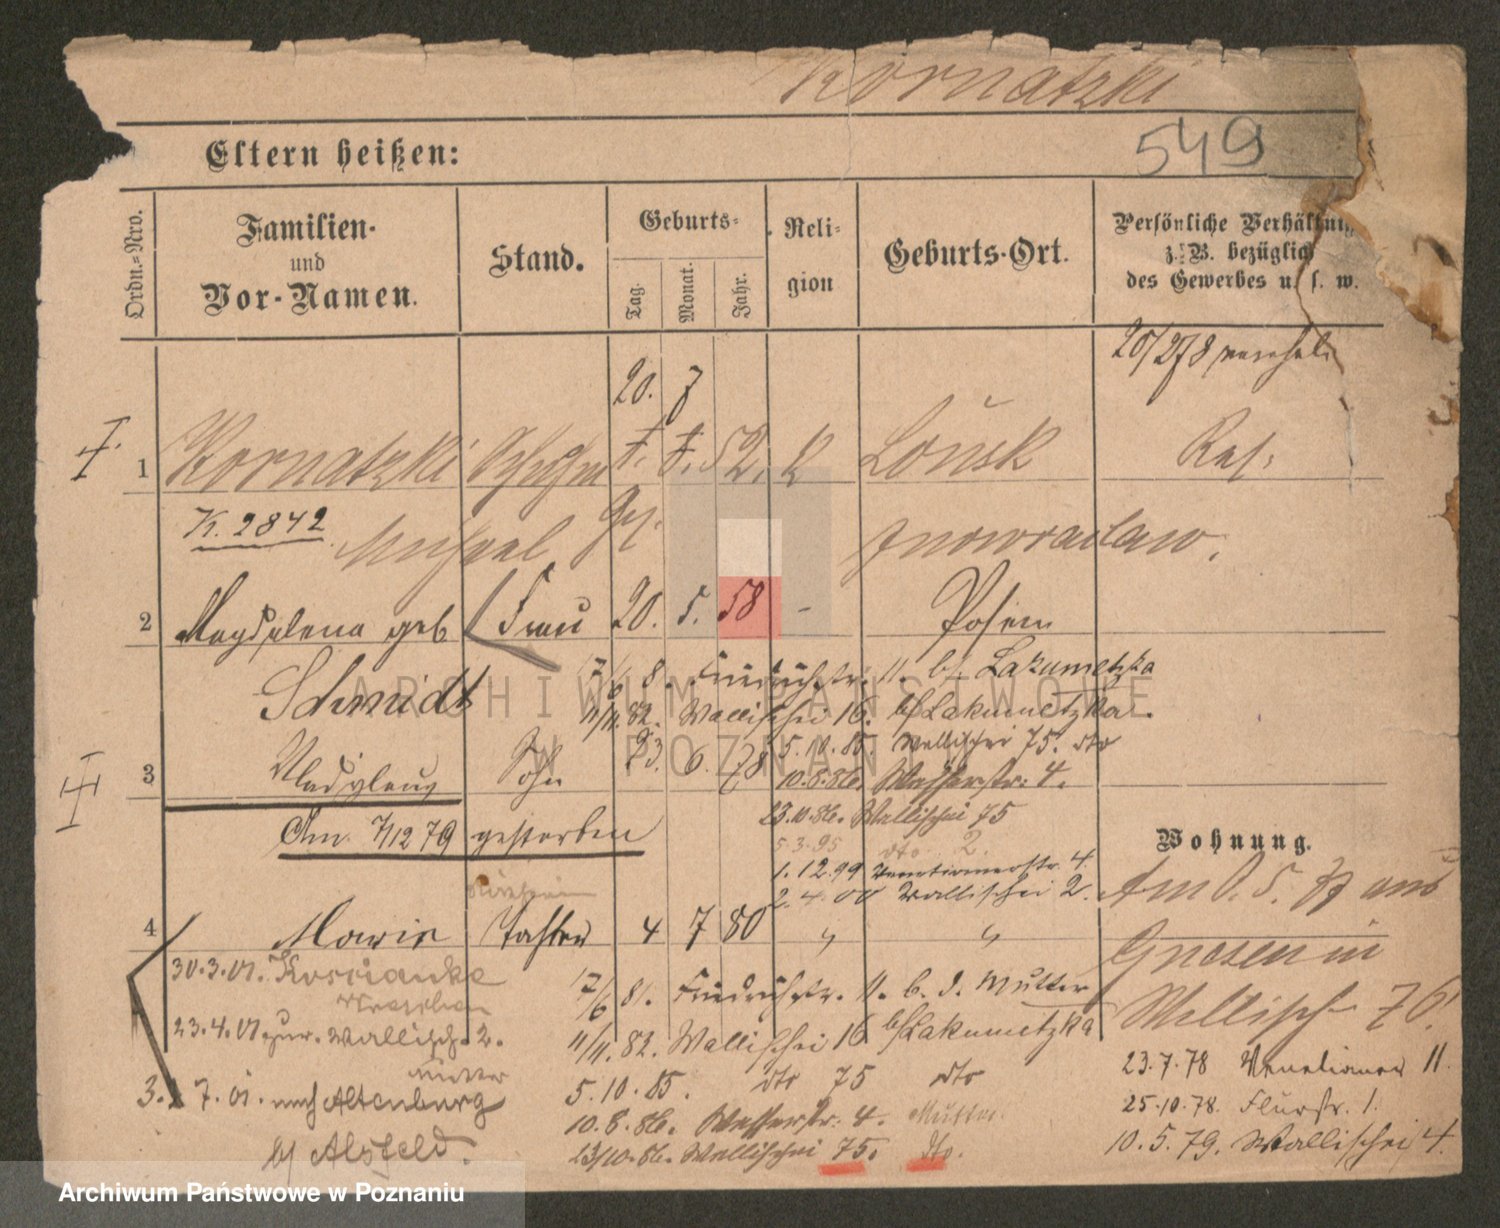 Kornatzki
549
Eltern heißen:
Ordn.-Nro.
Familien-
und
Vor-Namen.
Stand.
Geburts-
Tag. Monat. Jahr.
Reli-
gion
Geburts-Ort.
Persönliche Verhältni
z. B. bezüglich
des Gewerbes u. s. w.
20/2 78
20. 7
1 Kornatzki 52. K Res.
K. 2842
Inowraclaw.
2 Magdalena geb Frau 20. 5. 58 - Posen
Schmidt
8. Friedrichstr. 11. b/ Lakumetzka
11/11. 82. Wallischei 16. b/ Lakumetzka.
3 Sohn 23. 6. 78
5.10.85. Wallischei 75. dto
10.8.86. Wasserstr. 4.
23.10.86. Wallischei 75
Am 7/12 79 gestorben
5.3.95 dto 2.
1.12.99 Venetianerstr. 4.
2.4.00 Wallischei 2.
Wohnung.
Am aus
Gnesen in
Wallisch 76!
4 Marie Tochter 4 7 80 " "
30.3.01.
23.4.01 zur. Wallisch. 2.
Mutter
3. 7. 01. nach Altenburg
b/ Alsfeld.
17/6 81. Friedrichstr. 11. b. d. Mutter
11/11. 82. Wallischei 16 b/ Lakumetzka
5.10.85. dto 75 dto
10.8.86. Wasserstr. 4. Mutter
23/10.86. Wallischei 75. dto.
23.7.78 Venetianer 11.
25.10.78. Flurstr. 1.
10.5.79. Wallischei 4.
ARCHIWUM PAŃSTWOWE
W POZNANIU
Archiwum Państwowe w Poznaniu